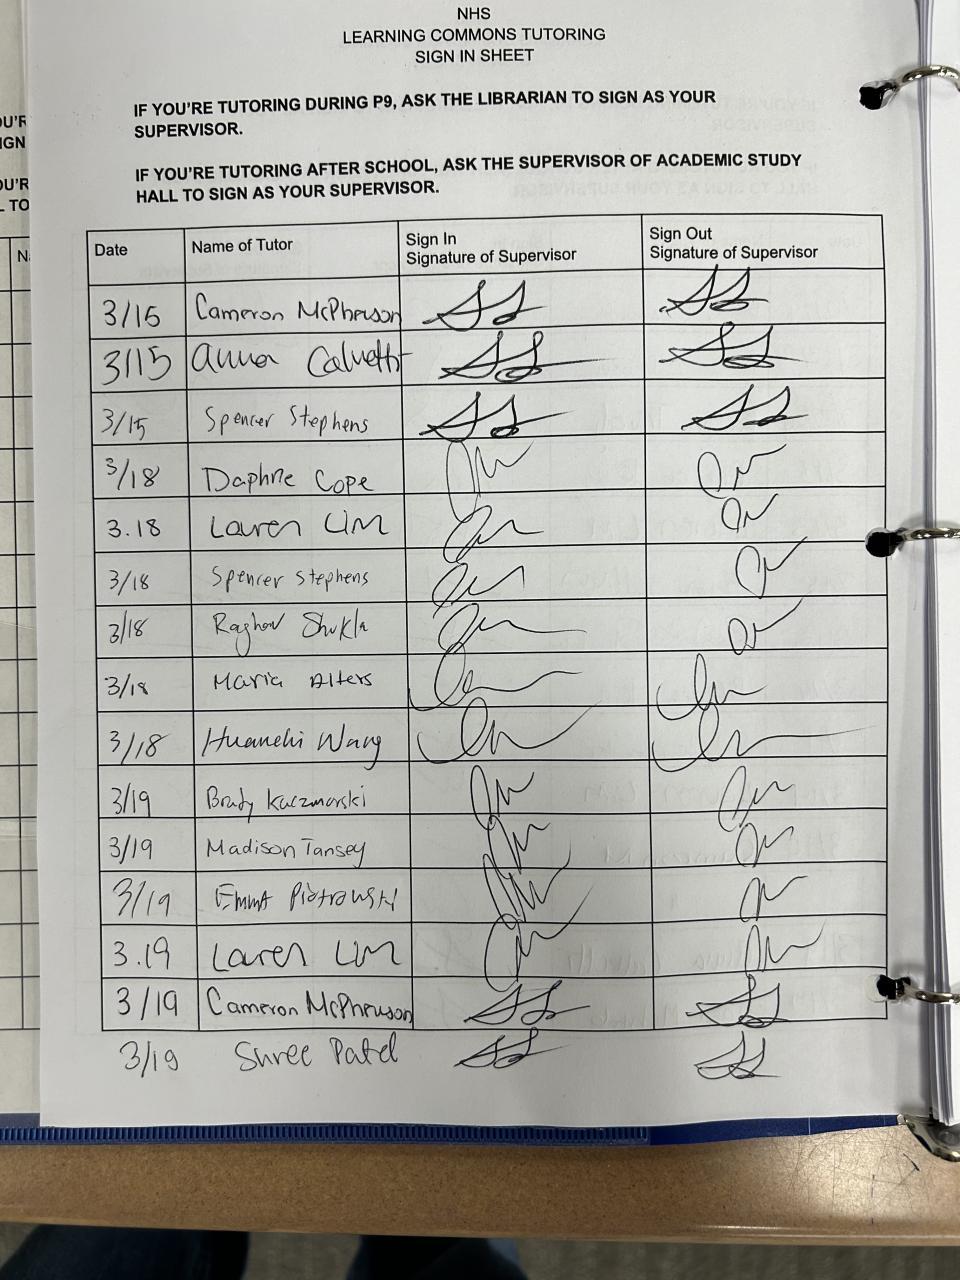 NHS
LEARNING COMMONS TUTORING
SIGN IN SHEET
IF YOU'RE TUTORING DURING P9, ASK THE LIBRARIAN TO SIGN AS YOUR
SUPERVISOR.
IF YOU'RE TUTORING AFTER SCHOOL, ASK THE SUPERVISOR OF ACADEMIC STUDY
HALL TO SIGN AS YOUR SUPERVISOR.
Date Name of Tutor Sign In Signature of Supervisor Sign Out Signature of Supervisor
3/15 Cameron McPherson
3/15 Anna Calvetti
3/15 Spencer Stephens
3/18 Daphne Cope
3.18 Lauren Lim
3/18 Spencer Stephens
3/18 Raghav Shukla
3/18 Maria Alters
3/18 Wang
3/19 Brady Kaczmarski
3/19 Madison Tansey
3/19 Emma Piotrowski
3.19 Lauren Lim
3/19 Cameron McPherson
3/19 Shree Patel